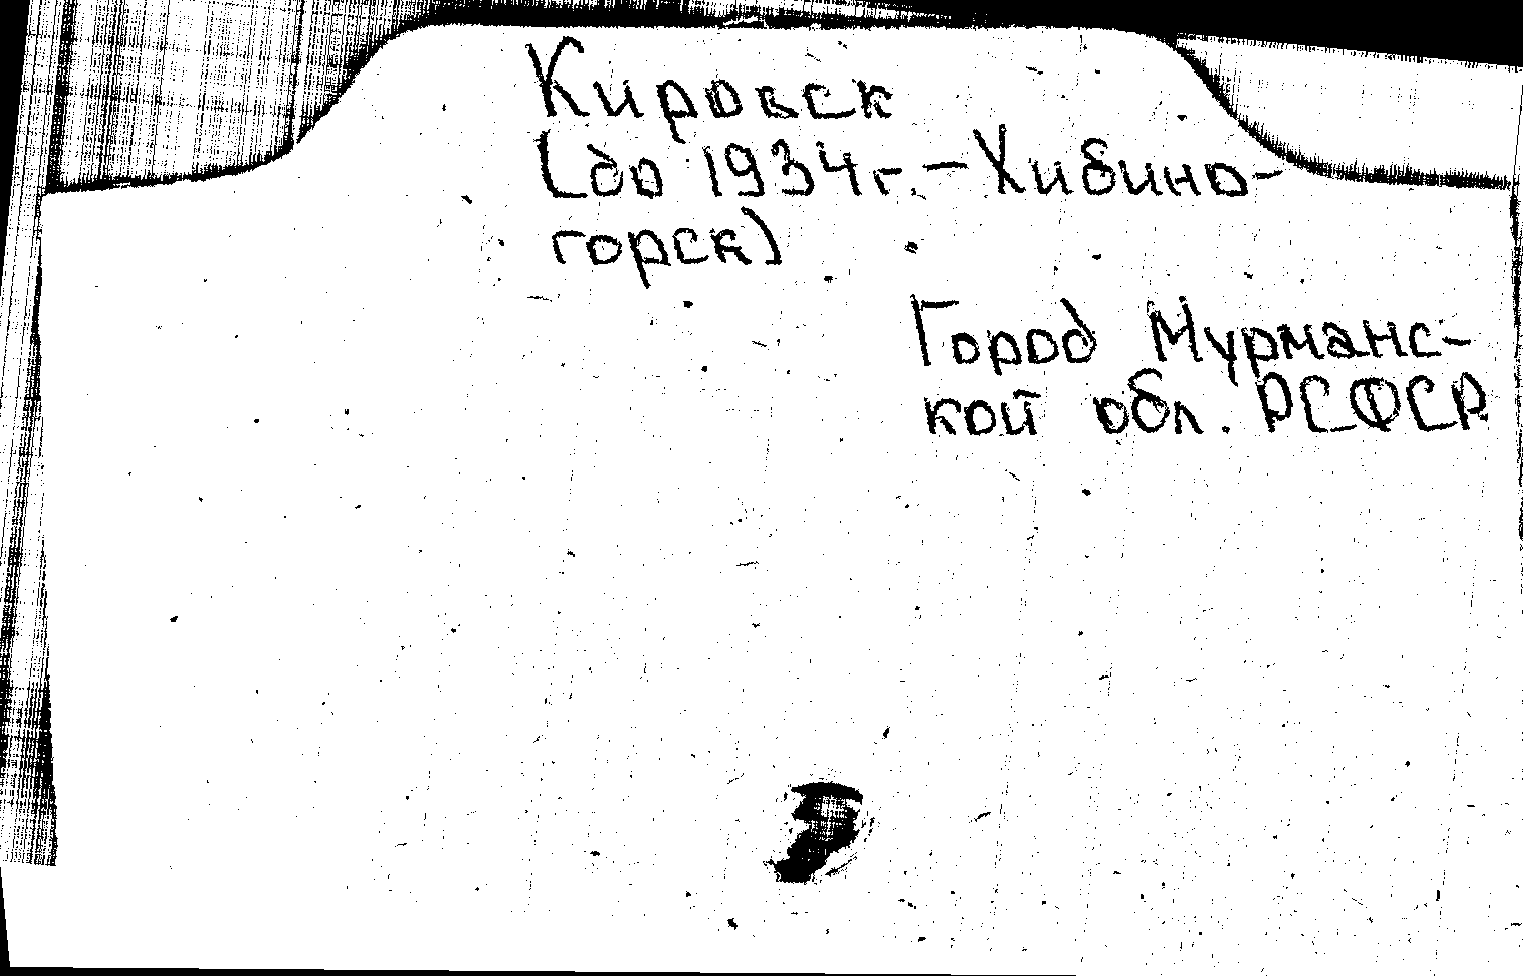 Кировск
(до 1934 г. – Хибино-
горск)
Город Мурманс-
кой обл. РСФСР